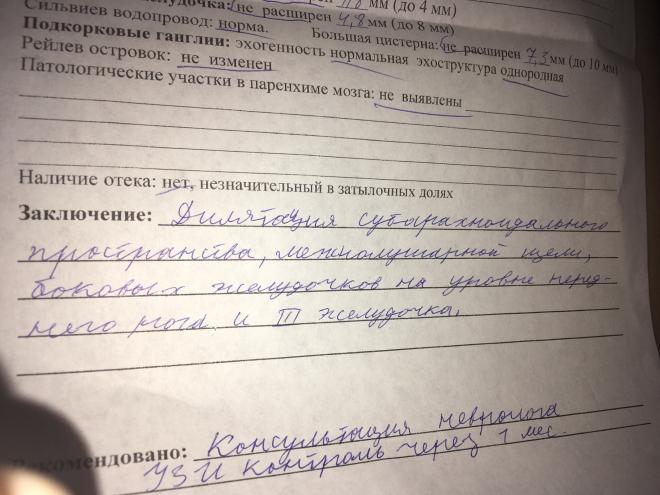 удочка: (не расширен мм (до 4 мм)
Сильвиев водопровод: норма.
не расширен 4,8 мм (до 8 мм)
Большая цистерна: не расширен 7,3 мм (до 10 мм)
Подкорковые ганглии: эхогенность нормальная эхоструктура однородная
Рейлев островок: не изменен
Патологические участки в паренхиме мозга: не выявлены
Наличие отека: нет, незначительный в затылочных долях
Заключение: Дилятация субарахноидального
пространства, межполушарной щели,
боковых желудочков на уровне перед-
него рога и III желудочка.
Рекомендовано: Консультация невролога
УЗИ контроль через 1 мес.